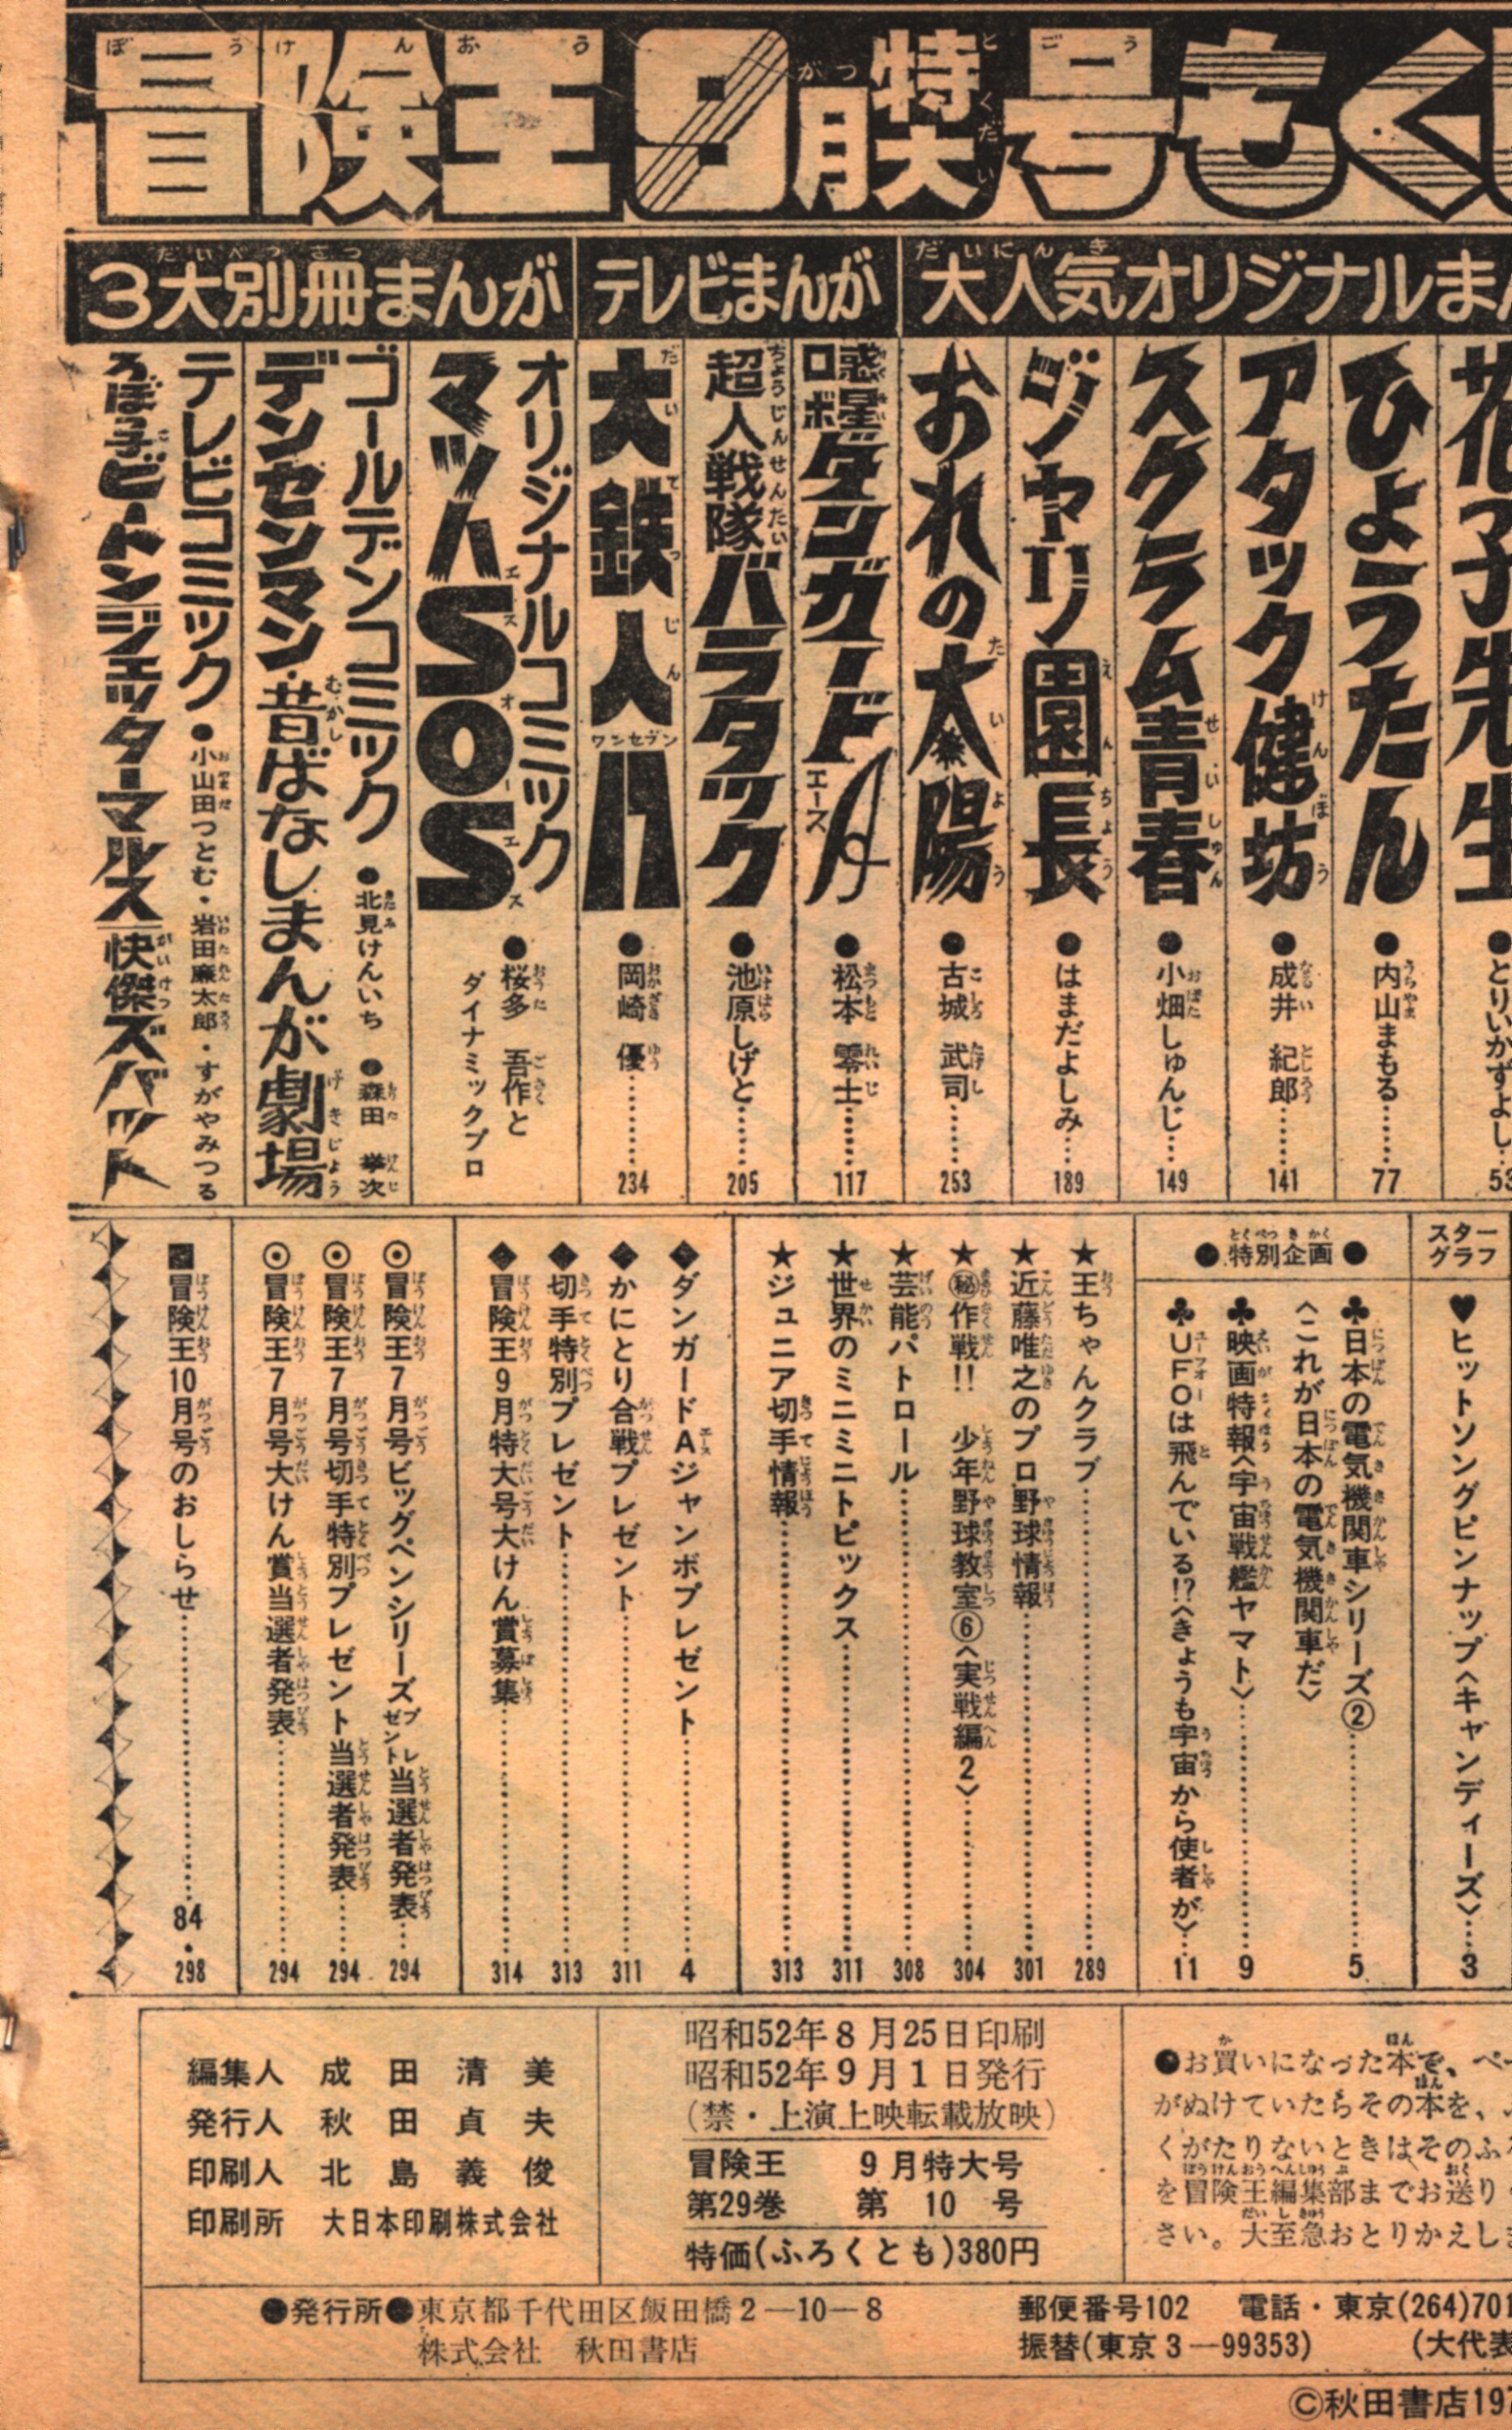 冒険王9月特大号もく
大人気オリジナルまん
花子先生 ●とりいかずよし… 53
ひょうたん ●内山まもる…… 77
アタック健坊 ●成井 紀郎…… 141
スクラム青春 ●小畑しゅんじ… 149
ジャリ園長 ●はまだよしみ… 189
おれの太陽 ●古城 武司…… 253
テレビまんが
惑星ロボダンガードA ●松本 零士…… 117
超人戦隊バラタック ●池原しげと…… 205
大鉄人17 ●岡崎 優…… 234
3大別冊まんが
オリジナルコミック
マッハSOS ●桜多 吾作と
ダイナミックプロ
ゴールデンコミック ●北見けんいち ●森田 拳次
デンセンマン・昔ばなしまんが劇場
テレビコミック ●小山田つとむ・岩田廉太郎・すがやみつる
ろぼっ子ビートン ジェッターマルス 快傑ズバット
スターグラフ
♥ヒットソングピンナップ〈キャンディーズ〉… 3
●特別企画●
♣日本の電気機関車シリーズ②…… 5
〈これが日本の電気機関車だ〉
♣映画特報〈宇宙戦艦ヤマト〉…… 9
♣UFOは飛んでいる!?〈きょうも宇宙から使者が〉… 11
★王ちゃんクラブ…… 289
★近藤唯之のプロ野球情報…… 301
★㊙作戦!! 少年野球教室⑥〈実戦編2〉…… 304
★芸能パトロール…… 308
★世界のミニミニトピックス…… 311
★ジュニア切手情報…… 313
◆ダンガードAジャンボプレゼント…… 4
◆かにとり合戦プレゼント…… 311
◆切手特別プレゼント…… 313
◆冒険王9月特大号大けん賞募集…… 314
⊙冒険王7月号ビッグペンシリーズプレゼント当選者発表… 294
⊙冒険王7月号切手特別プレゼント当選者発表…… 294
⊙冒険王7月号大けん賞当選者発表…… 294
■冒険王10月号のおしらせ…… 84・298
編集人 成田清美
発行人 秋田貞夫
印刷人 北島義俊
印刷所 大日本印刷株式会社
昭和52年8月25日印刷
昭和52年9月1日発行
(禁・上演上映転載放映)
冒険王 9月特大号
第29巻 第10号
特価(ふろくとも)380円
●お買いになった本で、ペー
がぬけていたらその本を、ふ
くがたりないときはそのふろ
を冒険王編集部までお送り
さい。大至急おとりかえしま
●発行所●東京都千代田区飯田橋2―10―8
株式会社 秋田書店
郵便番号102 電話・東京(264)701
振替(東京3―99353) (大代表
©秋田書店197